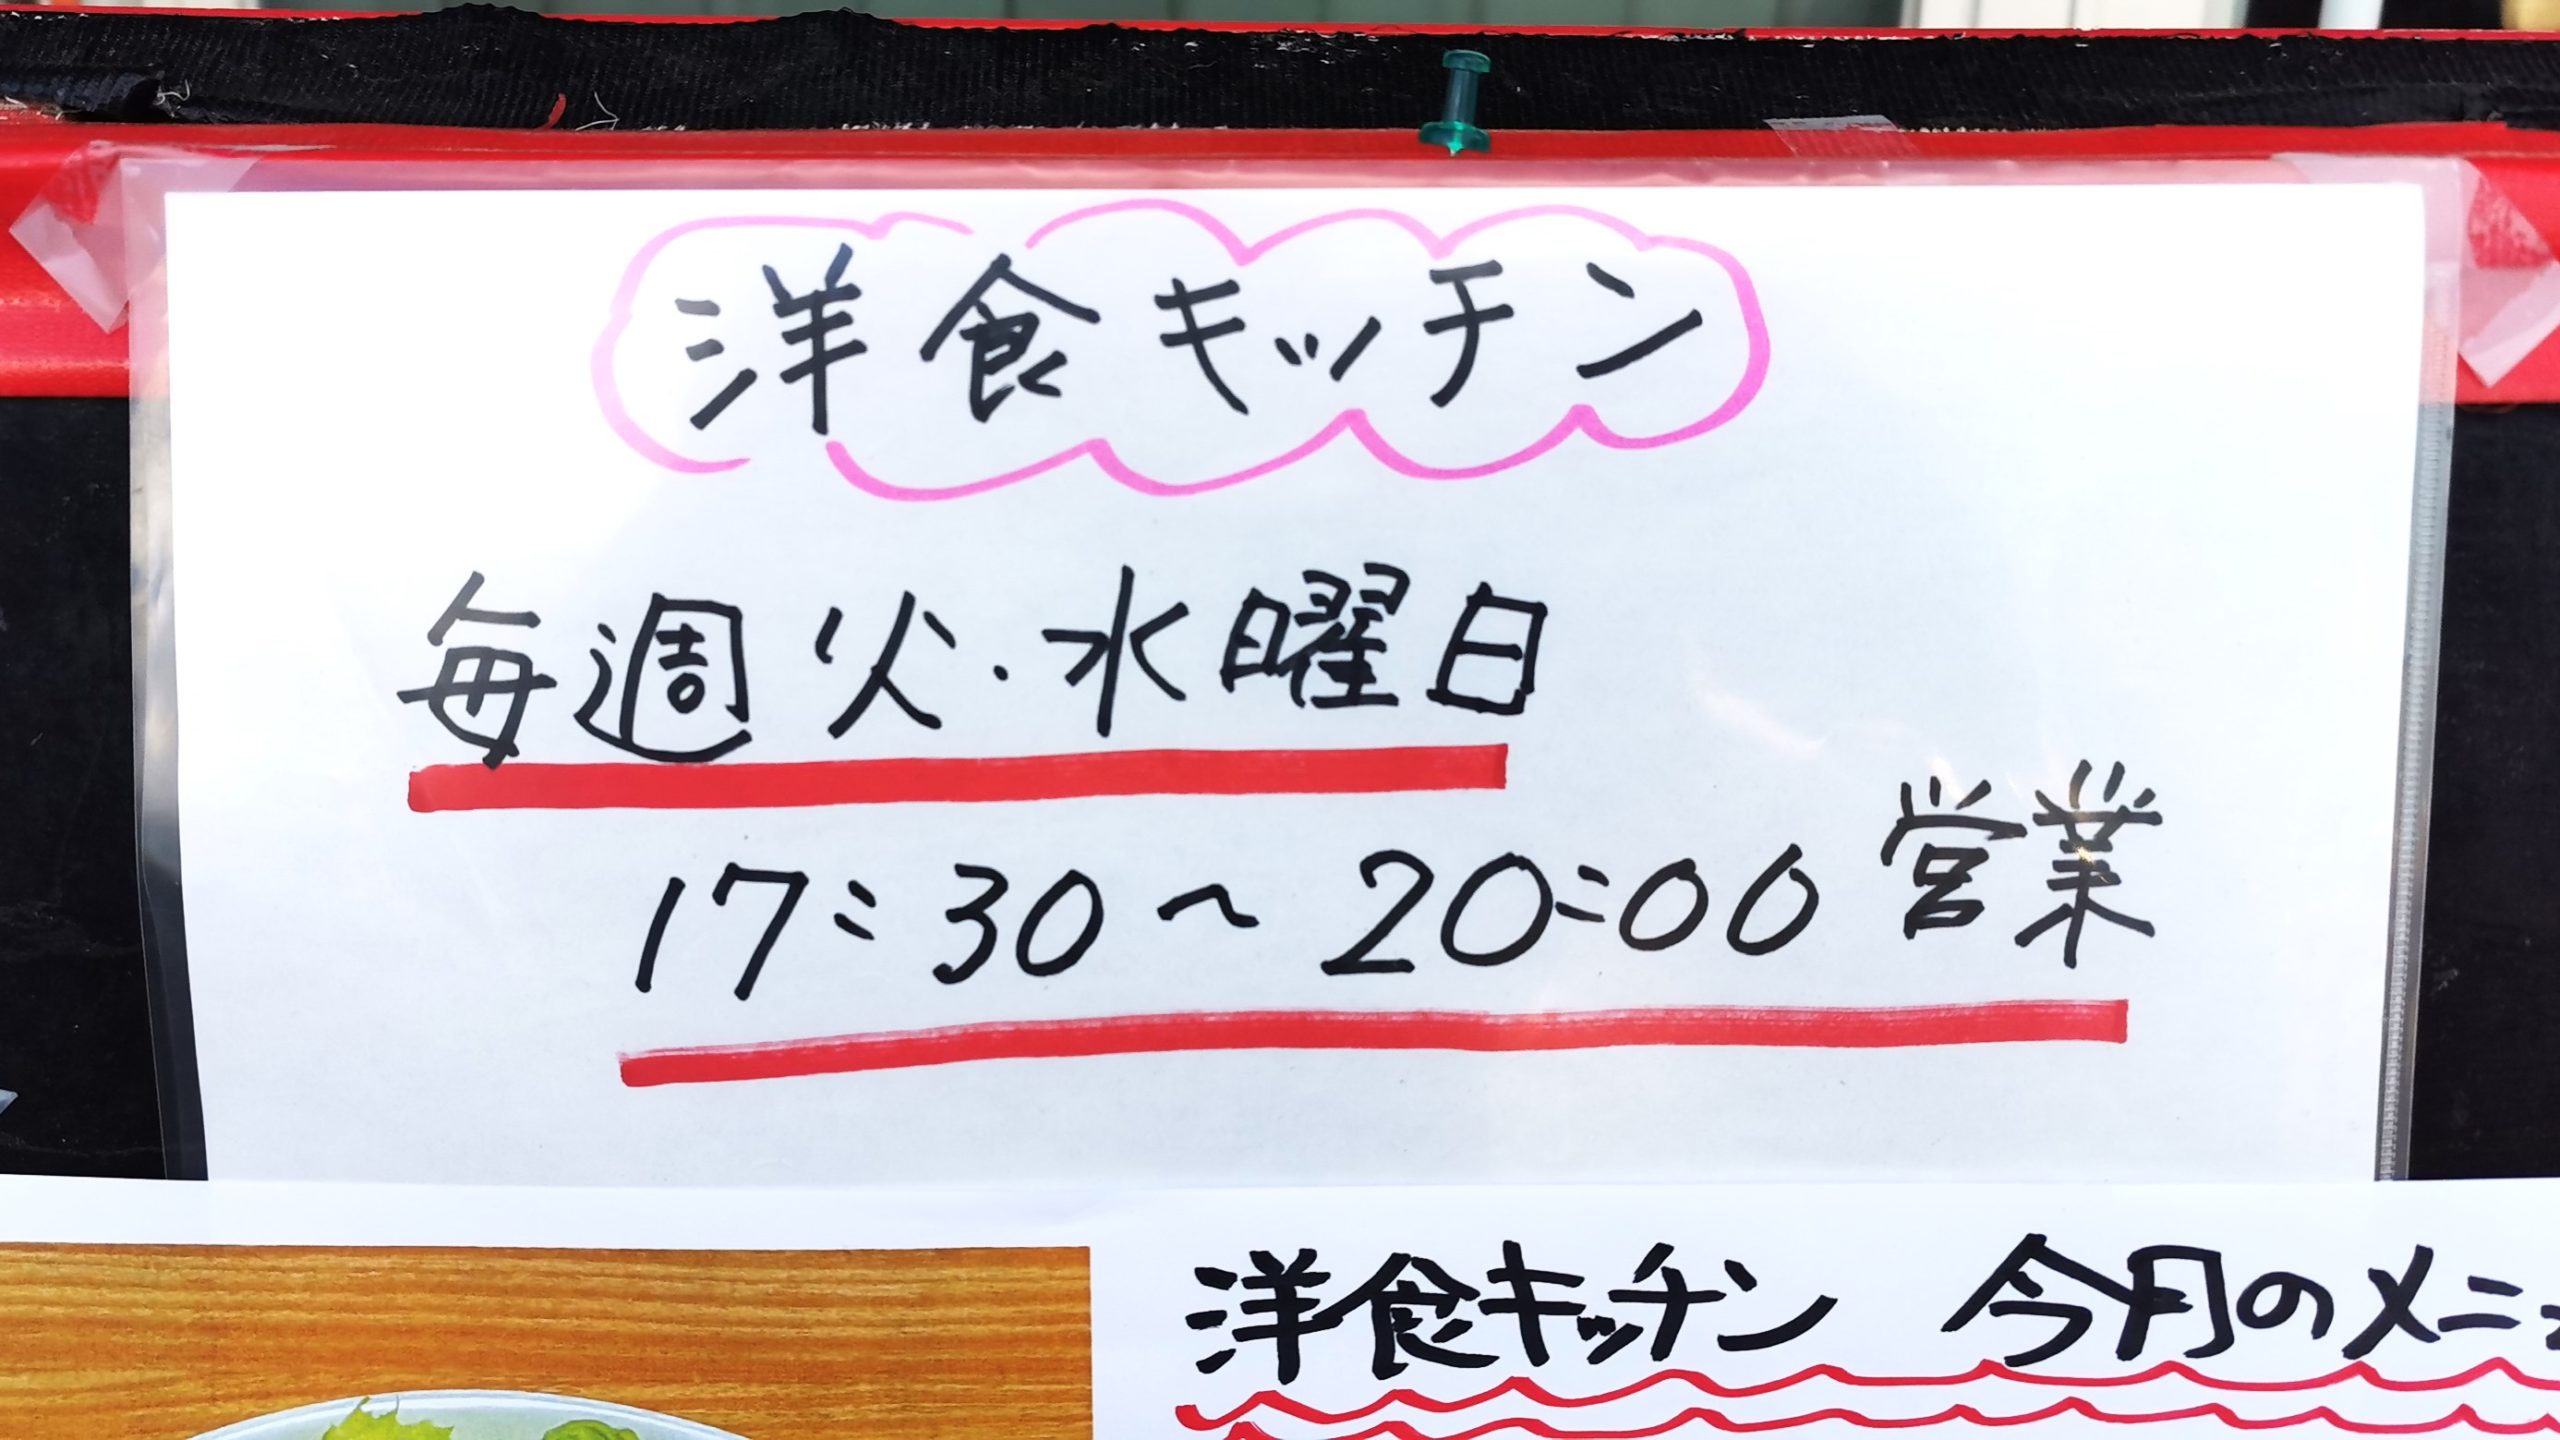 洋食キッチン
毎週火・水曜日
17:30〜20:00営業
洋食キッチン 今月のメニ